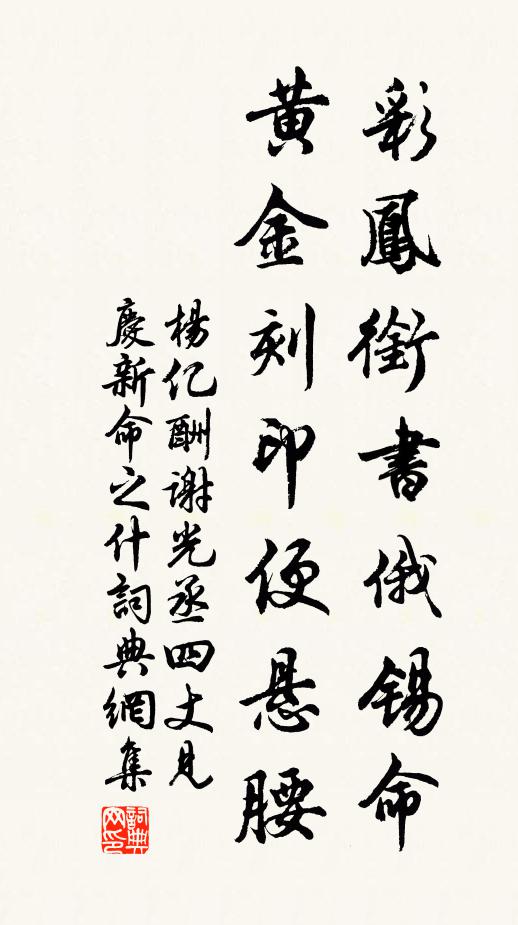 彩鳳銜書俄錫命
黃金刻印便懸腰
楊億酬謝光丞四丈見
慶新命之什詞典網集
詞典網印